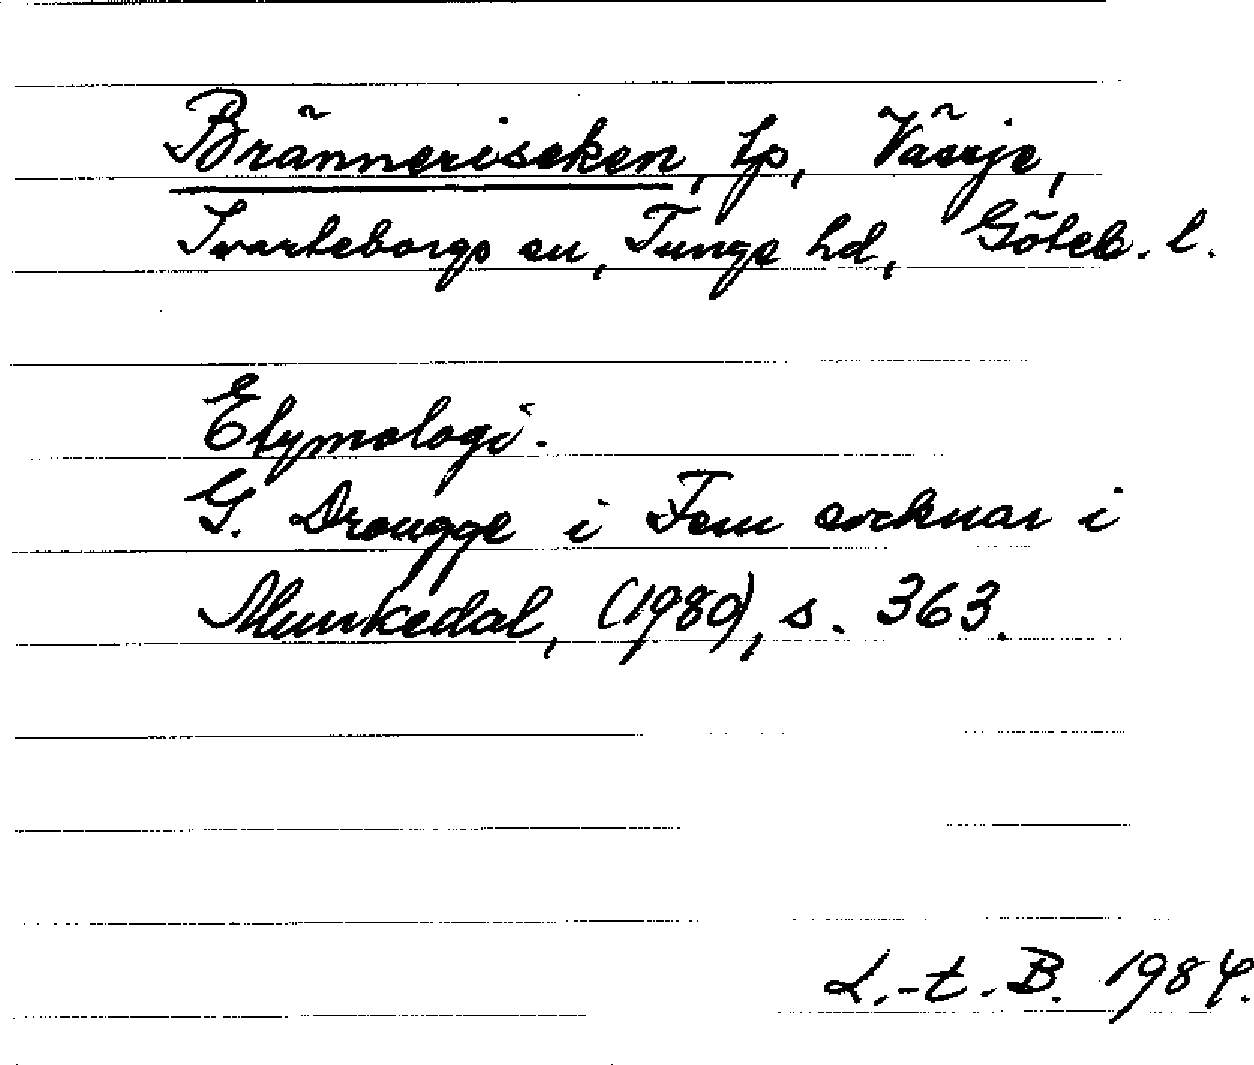 Bränneriseken, tp, Väsrje,
Svarteborgs sn, Tunge hd, Göteb. l.
Etymologi.
G. Drougge i Fem socknar i
Munkedal, (1980), s. 363.
L.-t.B. 1984.